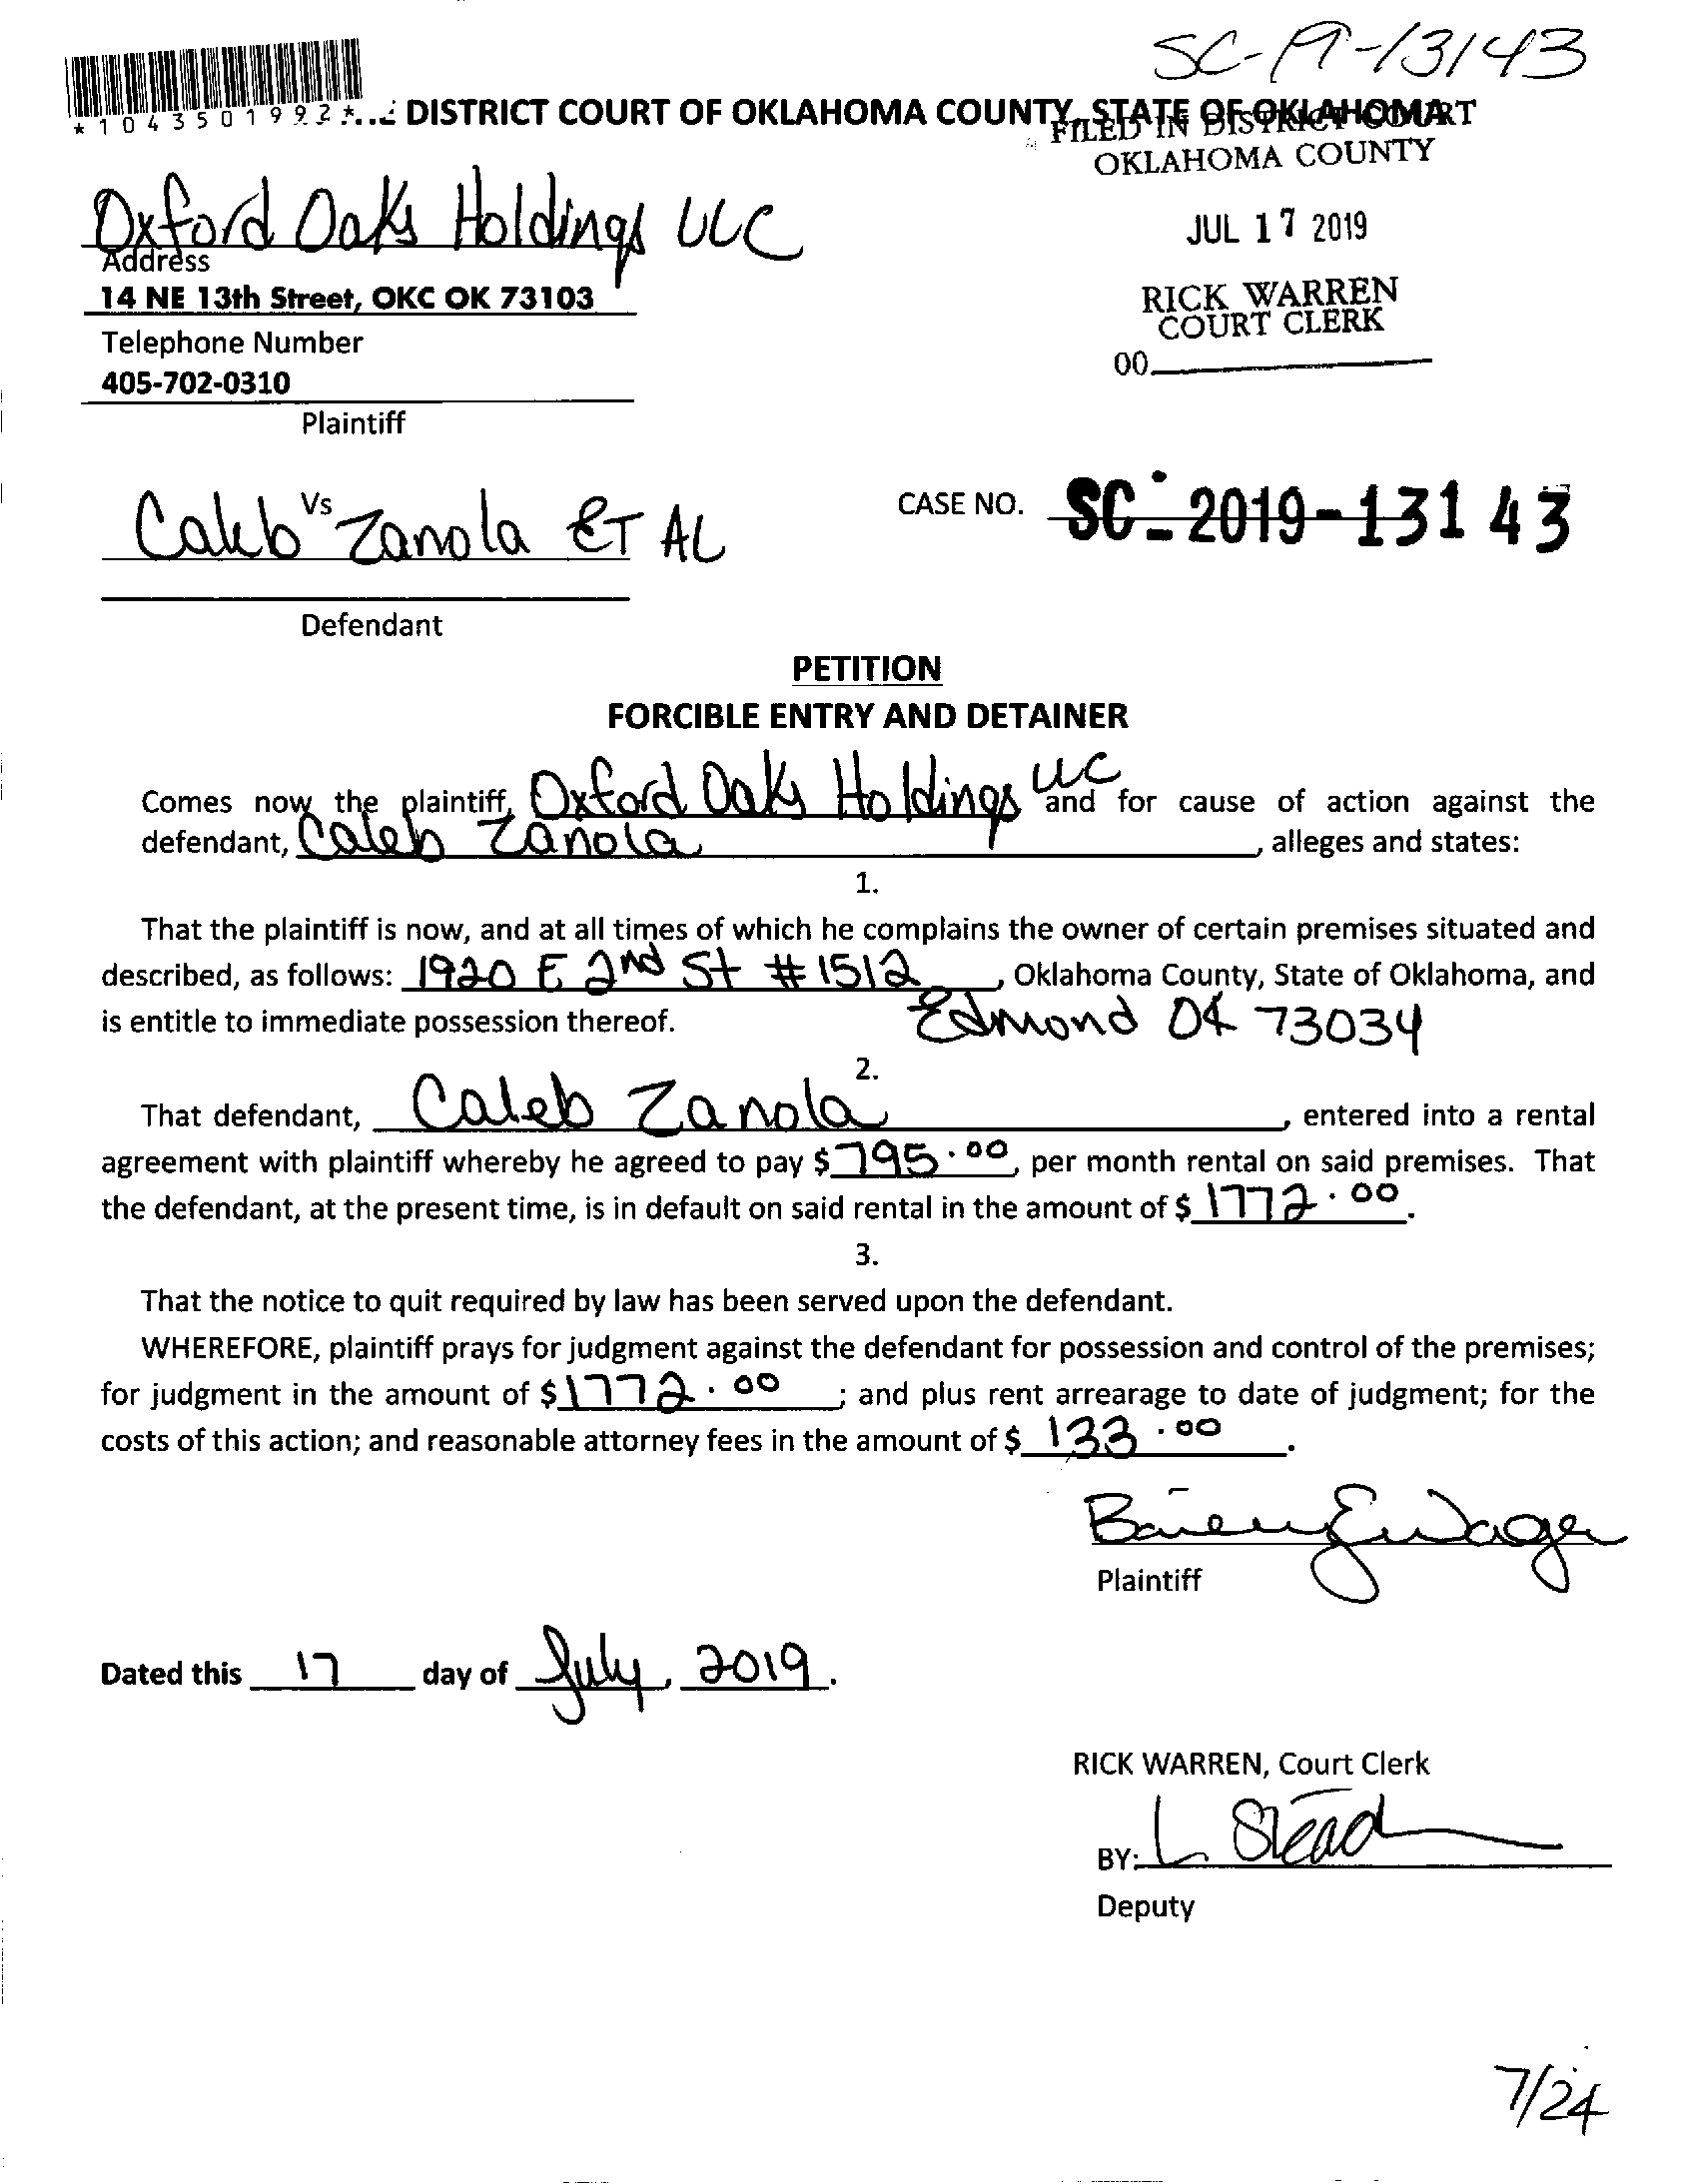 SC-19-13143
*1043501992*
DISTRICT COURT OF OKLAHOMA COUNTY, STATE OF OKLAHOMA
FILED IN DISTRICT COURT
OKLAHOMA COUNTY
JUL 17 2019
RICK WARREN
COURT CLERK
00
Oxford Oaks Holdings LLC
Address
14 NE 13th Street, OKC OK 73103
Telephone Number
405-702-0310
Plaintiff
Vs
Caleb Zanola ET AL
CASE NO. SC-2019-13143
Defendant
PETITION
FORCIBLE ENTRY AND DETAINER
Comes now the plaintiff, Oxford Oaks Holdings LLC and for cause of action against the
defendant, Caleb Zanola, alleges and states:
1.
That the plaintiff is now, and at all times of which he complains the owner of certain premises situated and
described, as follows: 1920 E 2nd St #1512, Oklahoma County, State of Oklahoma, and
is entitle to immediate possession thereof. Edmond OK 73034
2.
That defendant, Caleb Zanola, entered into a rental
agreement with plaintiff whereby he agreed to pay $795.00, per month rental on said premises. That
the defendant, at the present time, is in default on said rental in the amount of $1772.00.
3.
That the notice to quit required by law has been served upon the defendant.
WHEREFORE, plaintiff prays for judgment against the defendant for possession and control of the premises;
for judgment in the amount of $1772.00; and plus rent arrearage to date of judgment; for the
costs of this action; and reasonable attorney fees in the amount of $133.00.
Plaintiff
Dated this 17 day of July, 2019.
RICK WARREN, Court Clerk
BY: L Stead
Deputy
7/24